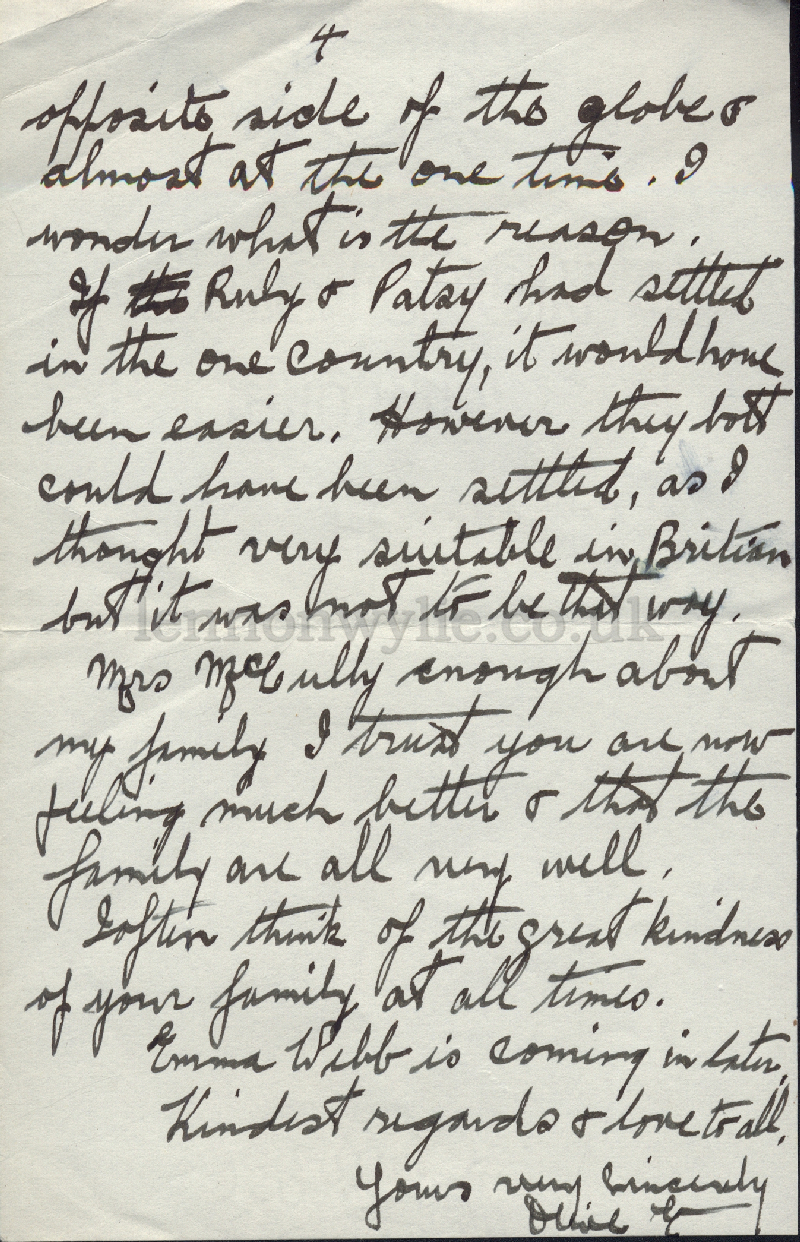 4
opposite side of the globe &
almost at the one time. I
wonder what is the reason.
If the Ruby & Patsy had settled
in the one country, it would have
been easier. However they both
could have been settled, as I
thought very suitable in Britian
but it was not to be that way.
lennonwylie.co.uk
Mrs McCully enough about
my family I trust you are now
feeling much better & that the
family are all very well.
I often think of the great kindness
of your family at all times.
Emma Webb is coming in later.
Kindest regards & love to all.
Yours very sincerely
Olive